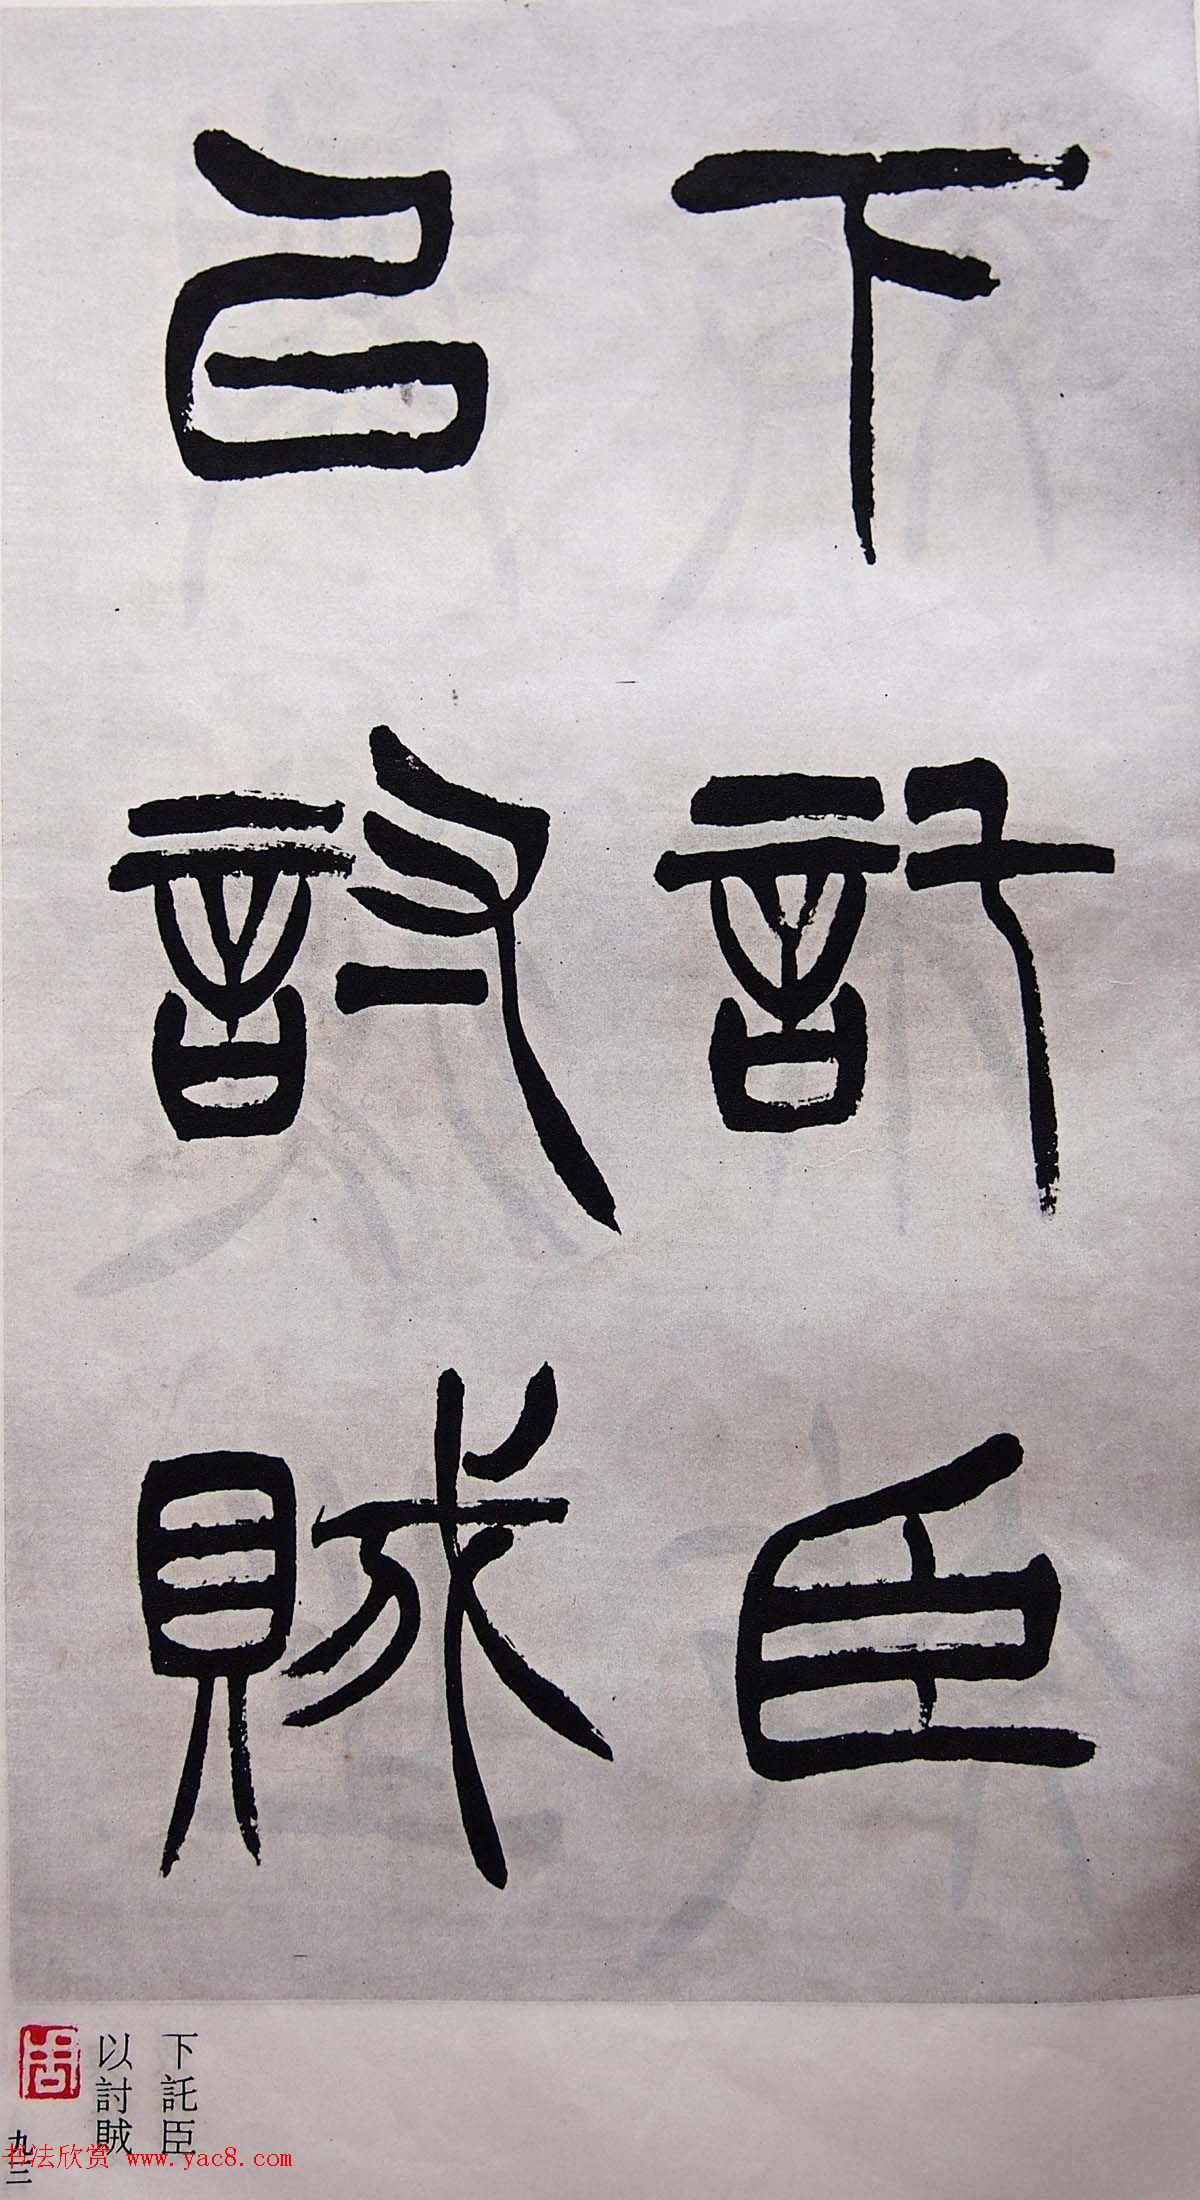 下託臣
以討賊
下託臣
以討賊
九三
书法欣赏 www.yac8.com